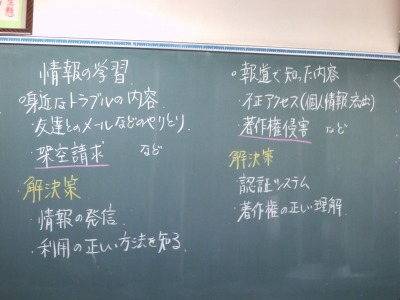 情報の学習
○身近なトラブルの内容
・友達とのメールなどのやりとり
・架空請求 など
解決策
・情報の発信
・利用の正しい方法を知る
○報道で知った内容
・不正アクセス(個人情報流出)
・著作権侵害 など
解決策
・認証システム
・著作権の正しい理解